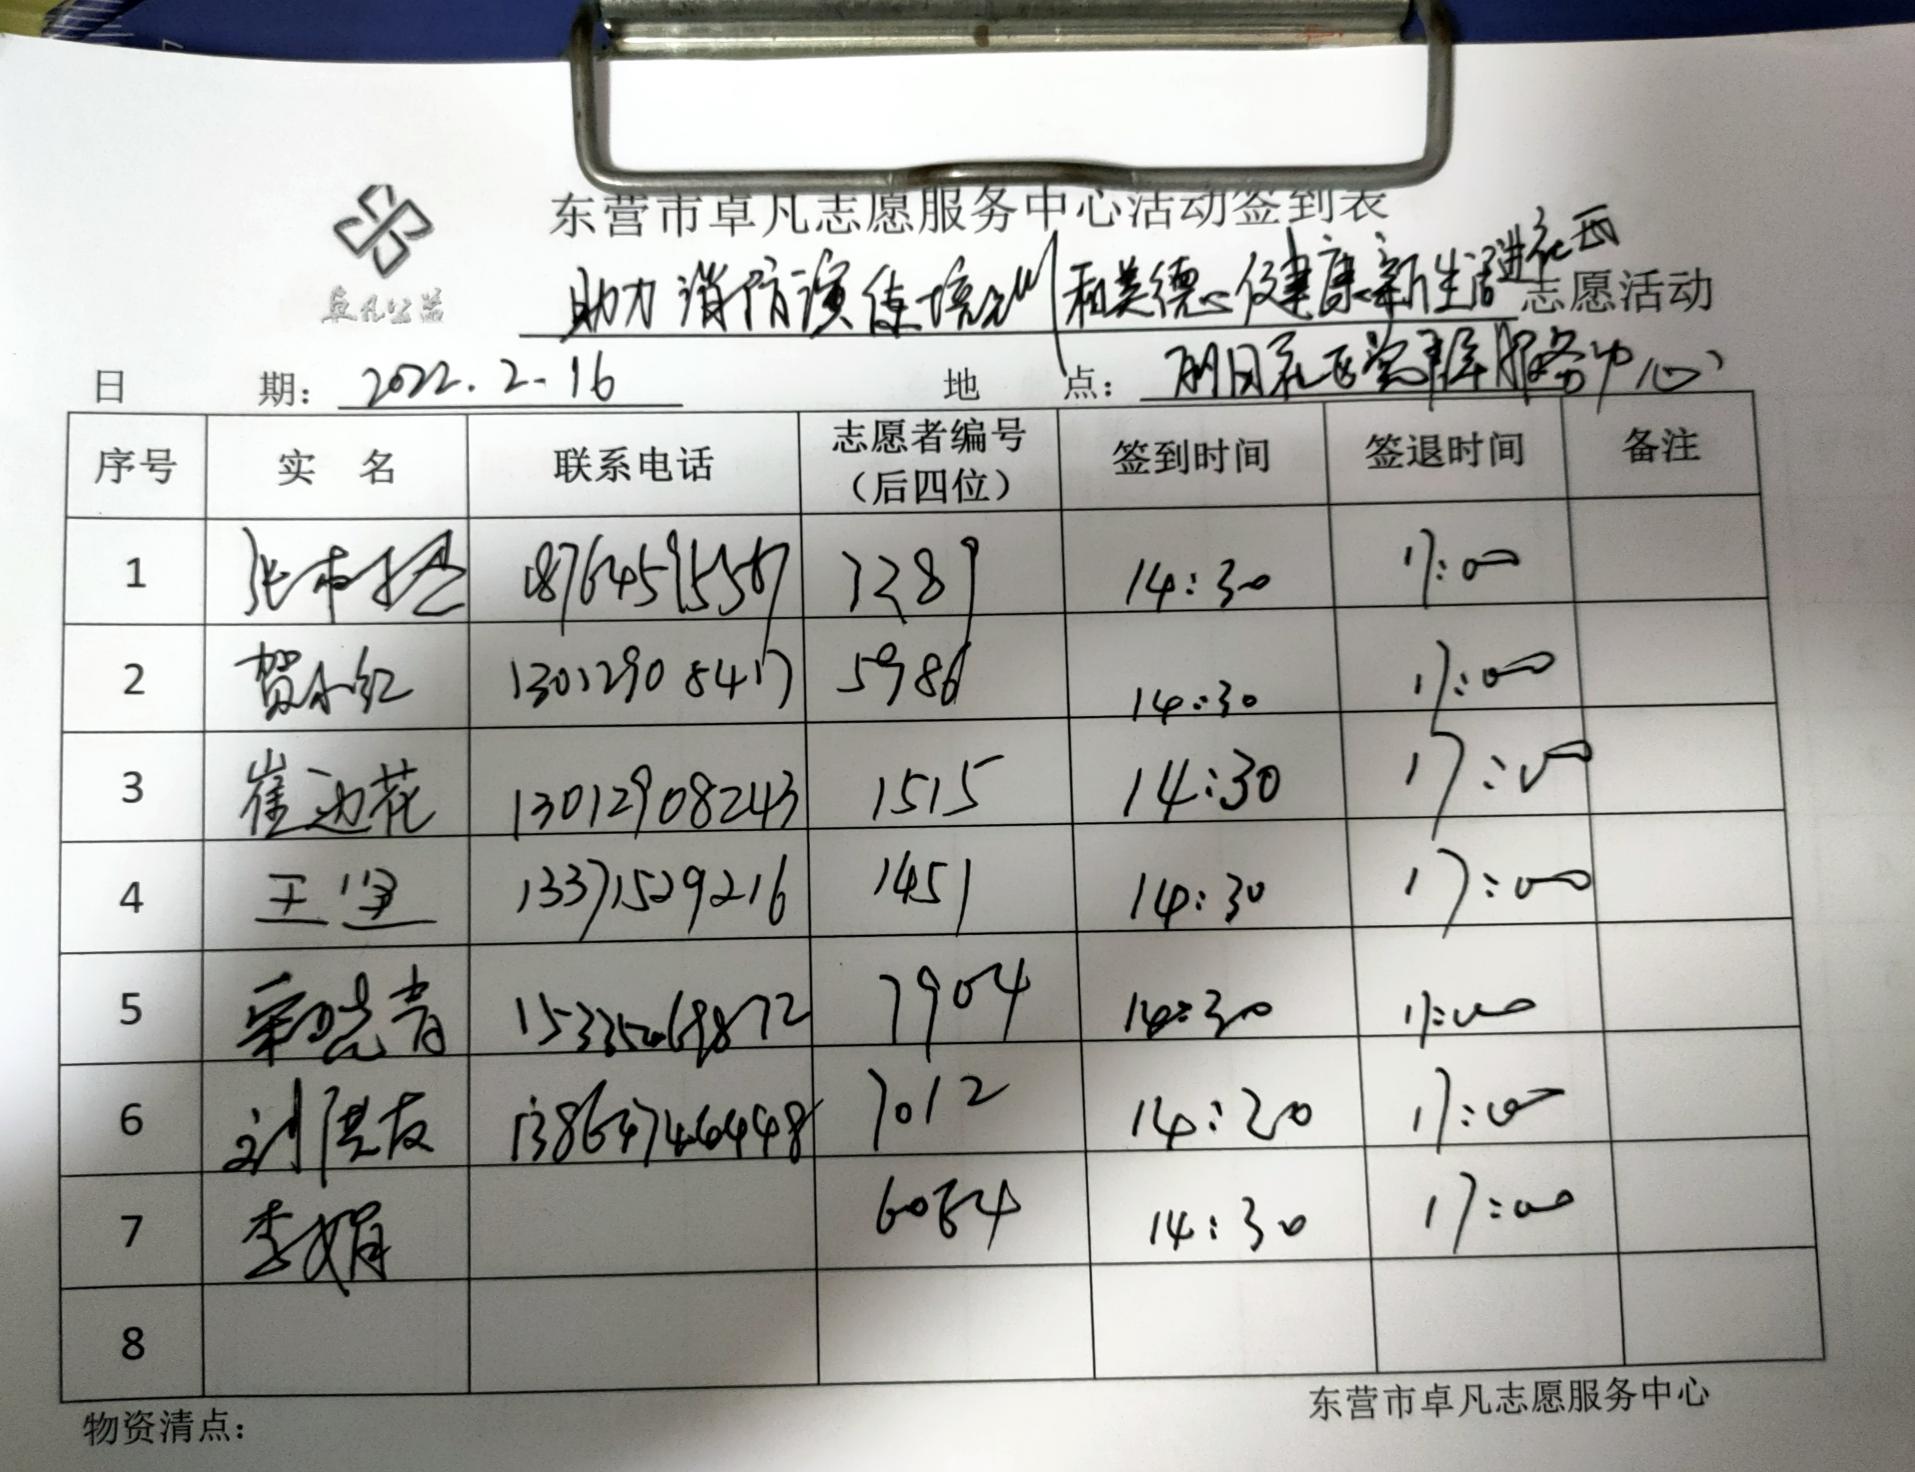 东营市卓凡志愿服务中心活动签到表
卓凡公益
助力消防演练培训和美德心健康新生活进社区 志愿活动
日 期: 2022.2.16 地 点: 明月社区党群服务中心
序号 实 名 联系电话 志愿者编号（后四位） 签到时间 签退时间 备注
1 18764595567 7289 14:30 17:00
2 贺小红 13012908417 5986 14:30 17:00
3 崔迎花 13012908243 1515 14:30 17:00
4 王 13371529216 1451 14:30 17:00
5 15335069872 7904 14:30 17:00
6 刘洪友 13864746448 7012 14:20 17:00
7 李娟 6064 14:30 17:00
8
物资清点：
东营市卓凡志愿服务中心